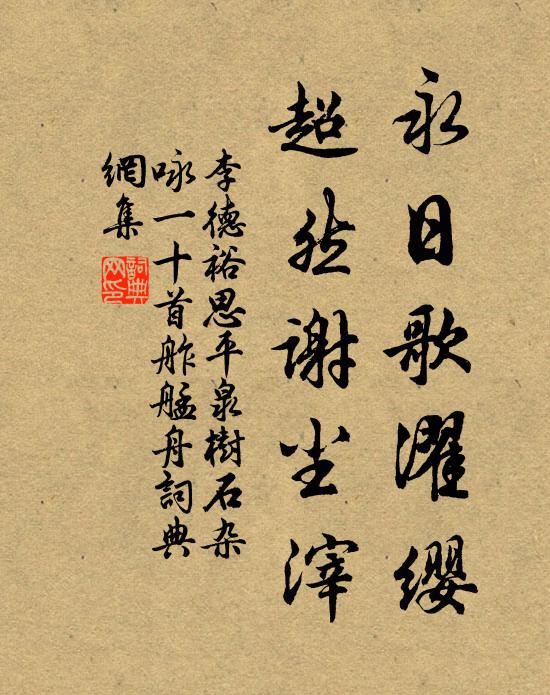 永日歌濯缨
超然谢尘滓
李德裕思平泉樹石杂
咏一十首舴艋舟詞典
網集
詞典
网印